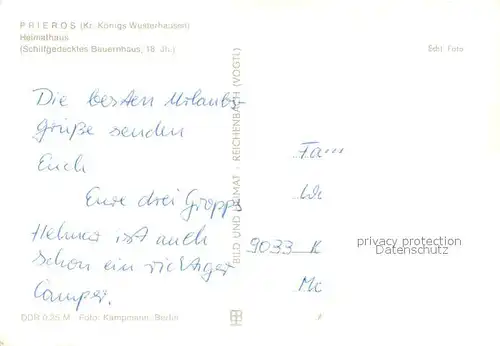 PRIEROS (Kr. Königs Wusterhausen)
Heimathaus
(Schilfgedecktes Bauernhaus, 18. Jh.)
Echt Foto
Die besten Urlaubs-
grüße senden
Euch
Eure drei Gropps
Helmar ist auch
schon ein richtiger
Camper.
BILD UND HEIMAT · REICHENBACH (VOGTL)
Fa
9033 K
privacy protection
Datenschutz
DDR 0,25 M · Foto: Kampmann, Berlin